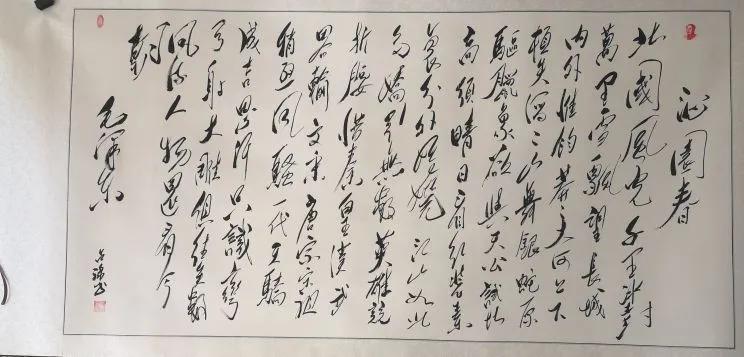 沁園春
北國風光千里冰封
萬里雪飄望長城
内外惟餘莽莽大河上下
頓失滔滔山舞銀蛇原
驅臘象欲與天公試比
高須晴日看紅裝素
裹分外妖嬈江山如此
多嬌引無數英雄競
折腰惜秦皇漢武
略輸文采唐宗宋祖
稍遜風騷一代天驕
成吉思汗只識彎
弓射大雕俱往矣數
風流人物還看今
朝
毛澤東